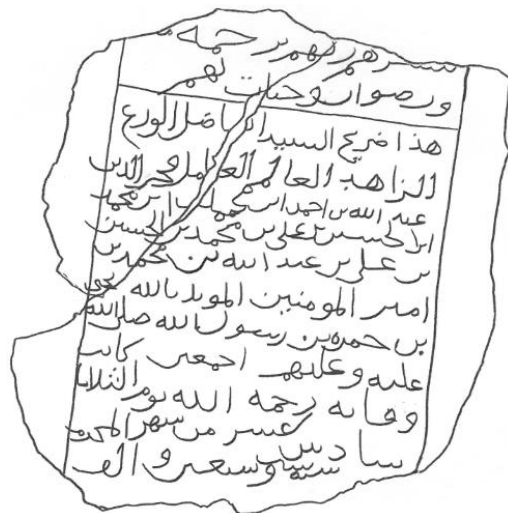 يبشرهم ربهم برحمة م
ورضوان وجنات لهم
هذا ضريح السيد الفاضل الورع
الزاهد العالم العامل فخر الدين
عبد الله بن احمد ابن محمد ابن محمد
ابن الحسين بن علي بن محمد بن الحسن
بن علي بن عبد الله بن محمد بن
امير المومنين المويد بالله يحي
بن حمزه بن رسول الله صلى الله
عليه وعليهم اجمعين كانت
وفاته رحمه الله يوم الثلاثا
سادس عشر من شهر المحرم
سنه وسبعين والف